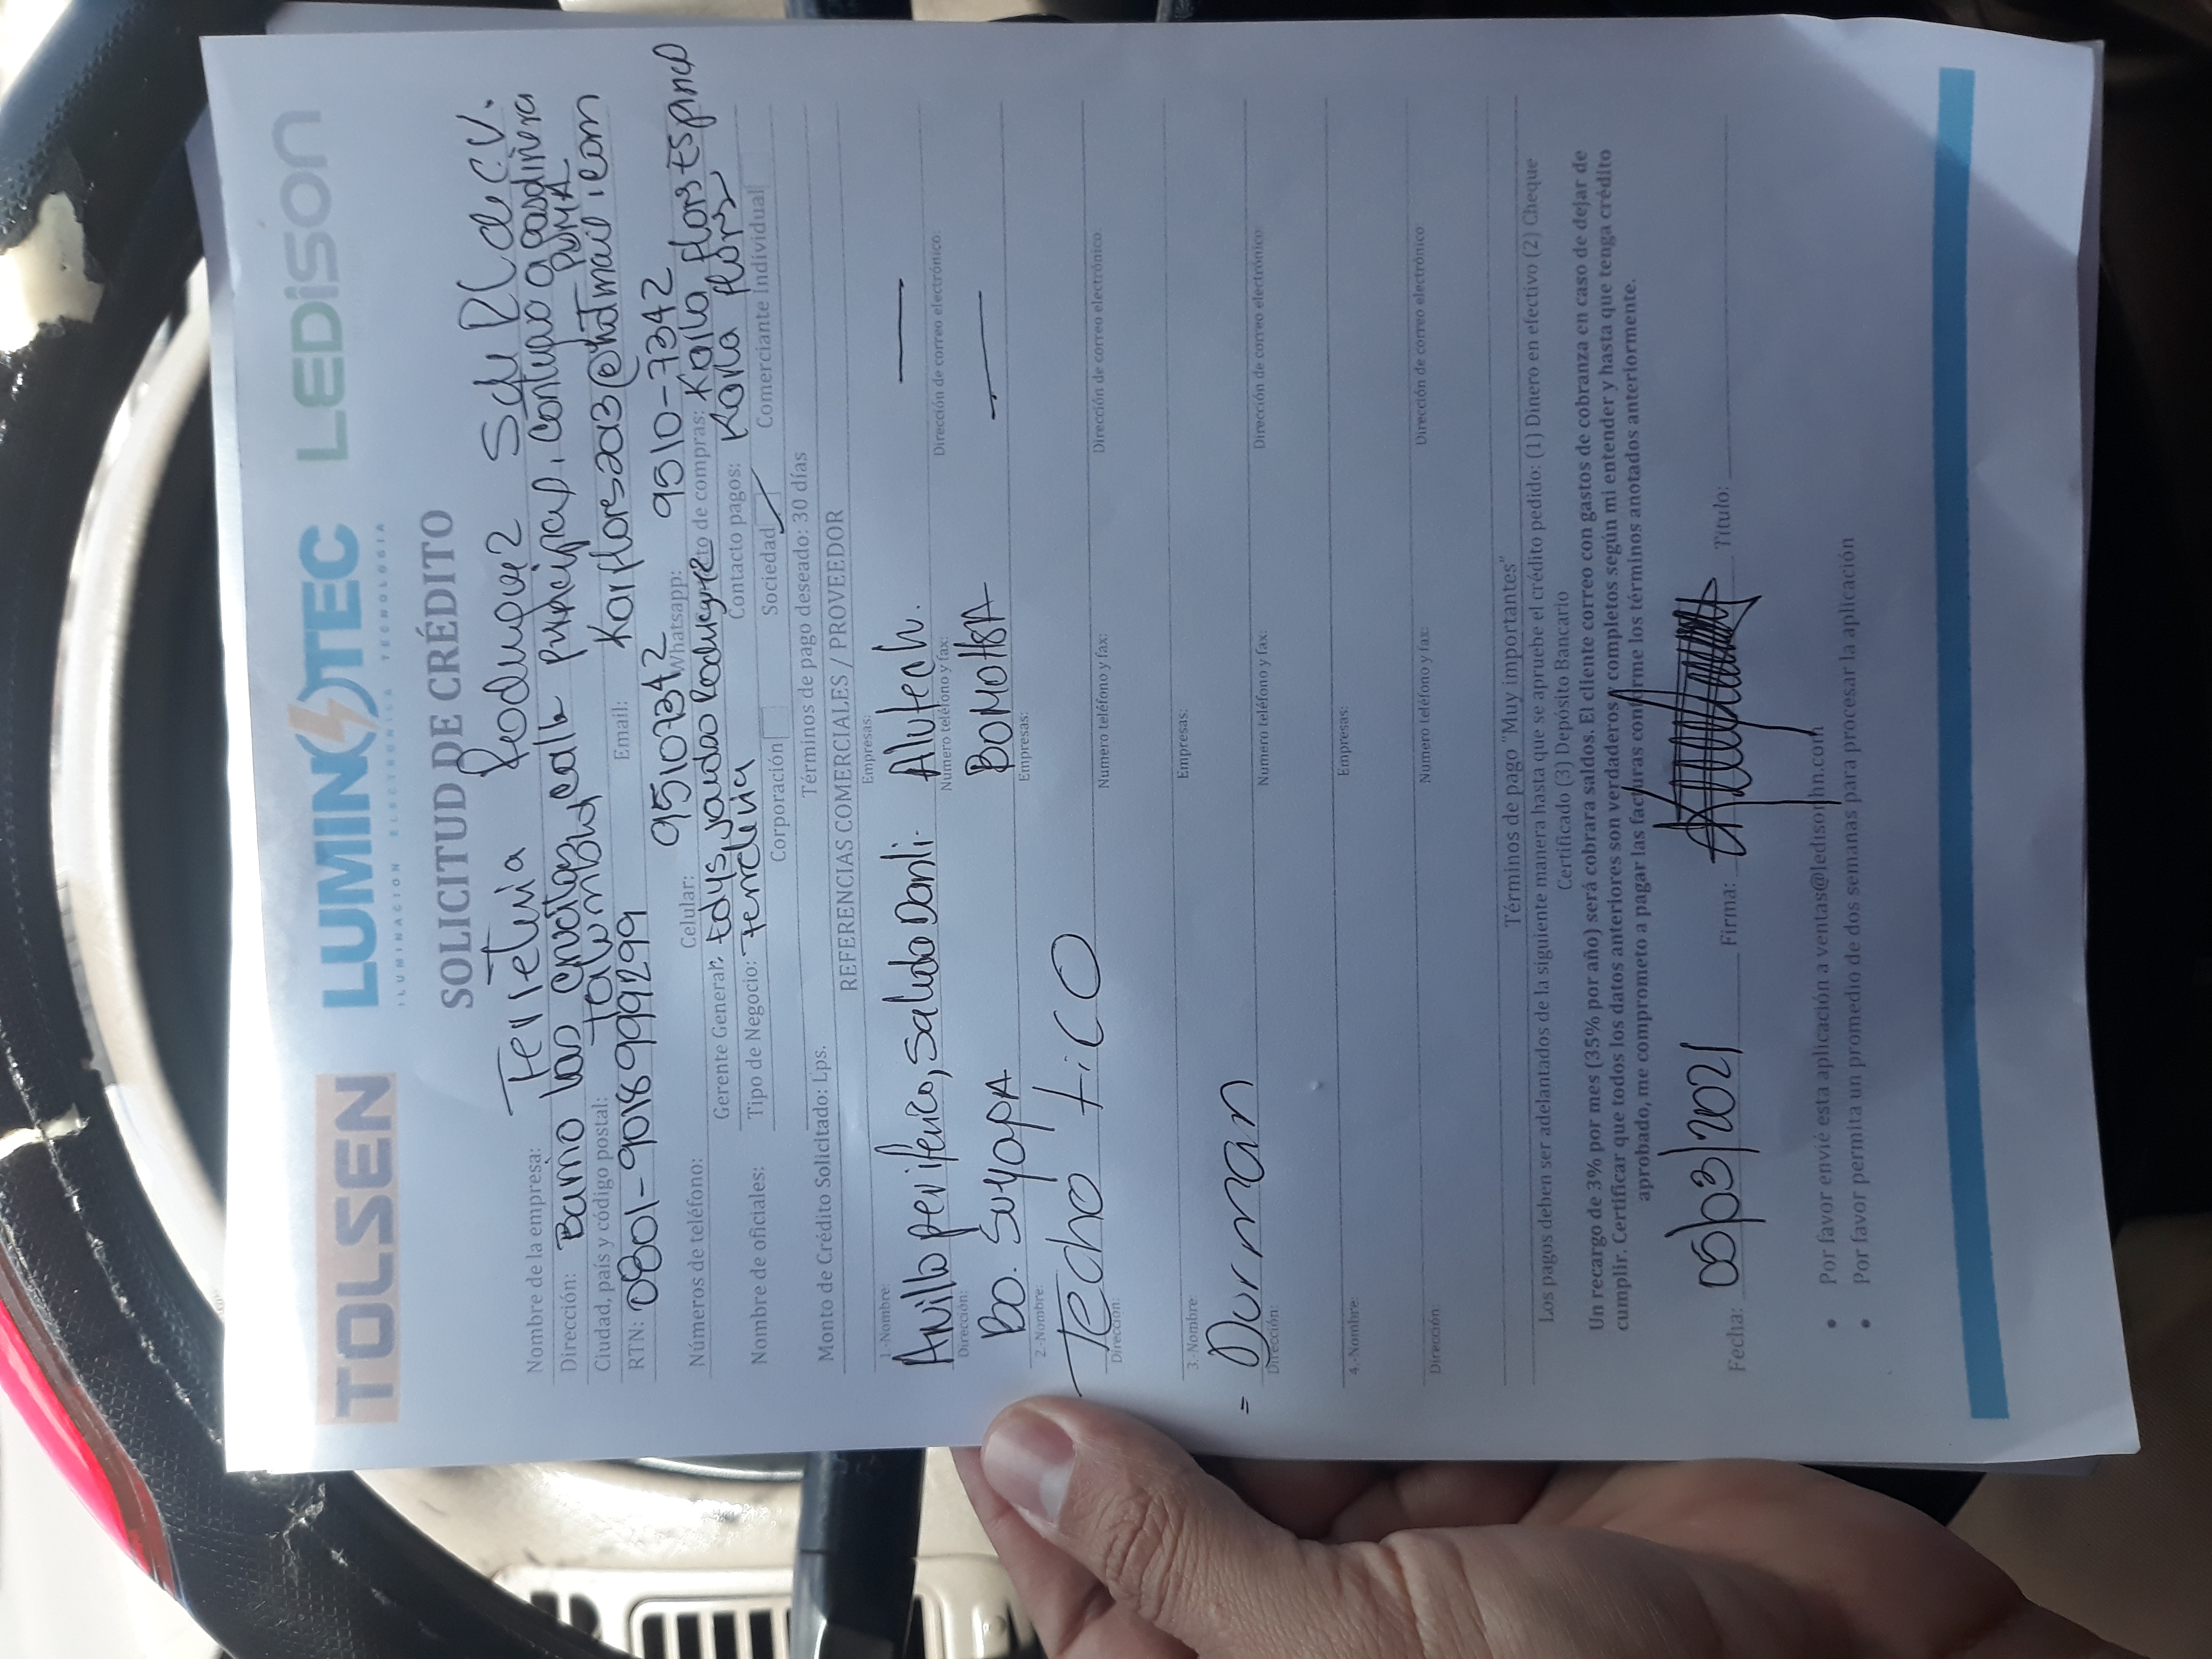 TOLSEN LUMINOTEC LEDiSON
ILUMINACION ELECTRONICA TECNOLOGIA
SOLICITUD DE CRÉDITO
Nombre de la empresa: Ferreteria Rodriguez S de RL de C.V.
Dirección: Barrio las crucitas, calle principal, contiguo a gasolinera PUMA
Ciudad, país y código postal:
RTN: 0801-9018999299 Email: Karflors2013@hotmail.com
Números de teléfono: Celular: 95107342 Whatsapp: 9510-7342
Gerente General: Edys Rodriguez to de compras: Karla flors Espinal
Nombre de oficiales: Tipo de Negocio: Ferreteria Contacto pagos: Karla flors
Corporación Sociedad Comerciante Individual
Monto de Crédito Solicitado: Lps. Términos de pago deseado: 30 días
REFERENCIAS COMERCIALES / PROVEEDOR
1.-Nombre: Empresas:
Anillo periferico, Salida Danli. Alutech.
Dirección: Numero teléfono y fax: Dirección de correo electrónico:
Bo. SuyapA BOMOHSA
2.-Nombre: Empresas:
Techo tico
Dirección: Numero teléfono y fax: Dirección de correo electrónico:
3.-Nombre: Empresas:
= Durman
Dirección: Numero teléfono y fax: Dirección de correo electrónico:
4.-Nombre: Empresas:
Dirección Numero teléfono y fax: Dirección de correo electrónico:
Términos de pago "Muy importantes"
Los pagos deben ser adelantados de la siguiente manera hasta que se apruebe el crédito pedido: (1) Dinero en efectivo (2) Cheque
Certificado (3) Depósito Bancario
Un recargo de 3% por mes (35% por año) será cobrara saldos. El cliente correo con gastos de cobranza en caso de dejar de
cumplir. Certificar que todos los datos anteriores son verdaderos y completos según mi entender y hasta que tenga crédito
aprobado, me comprometo a pagar las facturas conforme los términos anotados anteriormente.
Fecha: 05/03/2021 Firma: Titulo:
• Por favor envié esta aplicación a ventas@ledisonhn.com
• Por favor permita un promedio de dos semanas para procesar la aplicación